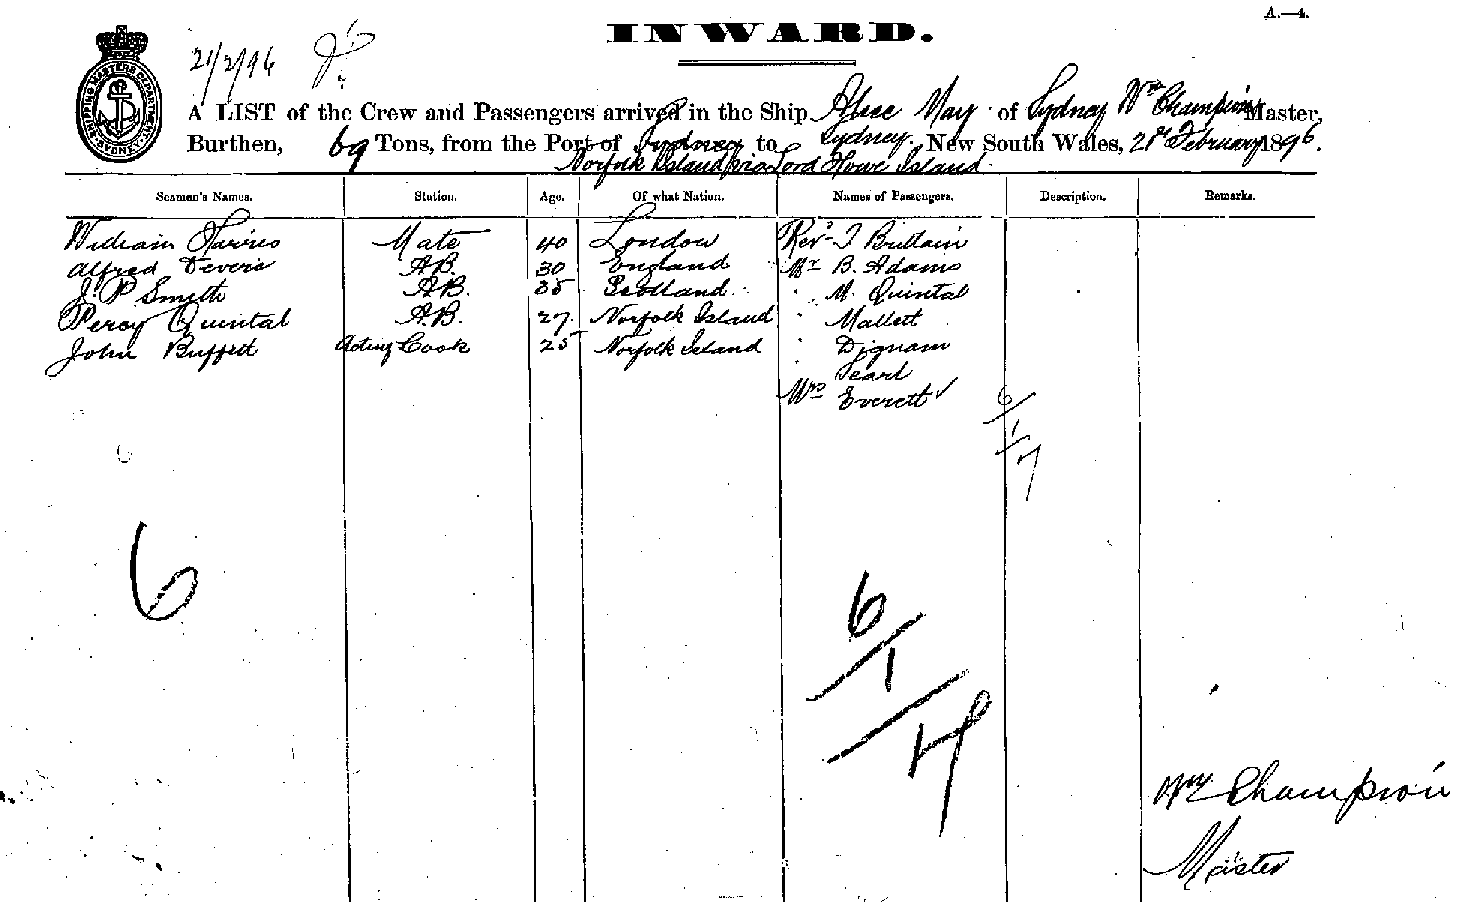 A.—4.
INWARD.
21/2/96
A LIST of the Crew and Passengers arrived in the Ship Alice May of Sydney Wm Champion Master,
Burthen, 69 Tons, from the Port of Sydney to Sydney New South Wales, 21st February 1896.
Norfolk Island via Lord Howe Island
Seamen's Names. Station. Age. Of what Nation. Names of Passengers. Description. Remarks.
William Mate 40 London Revd T Brittain
Alfred Devere A.B. 30 England Mr B. Adams
J. P Smith A.B. 35 Scotland " M. Quintal
Percy Quintal A.B. 27 Norfolk Island " Mallett
John Buffett Acting Cook 25 Norfolk Island " Dignam
Pearl
Mrs Everett
6/1/7
6
6/1/7
Wm Champion
Master
SHIPPING MASTERS DEPARTMENT SYDNEY